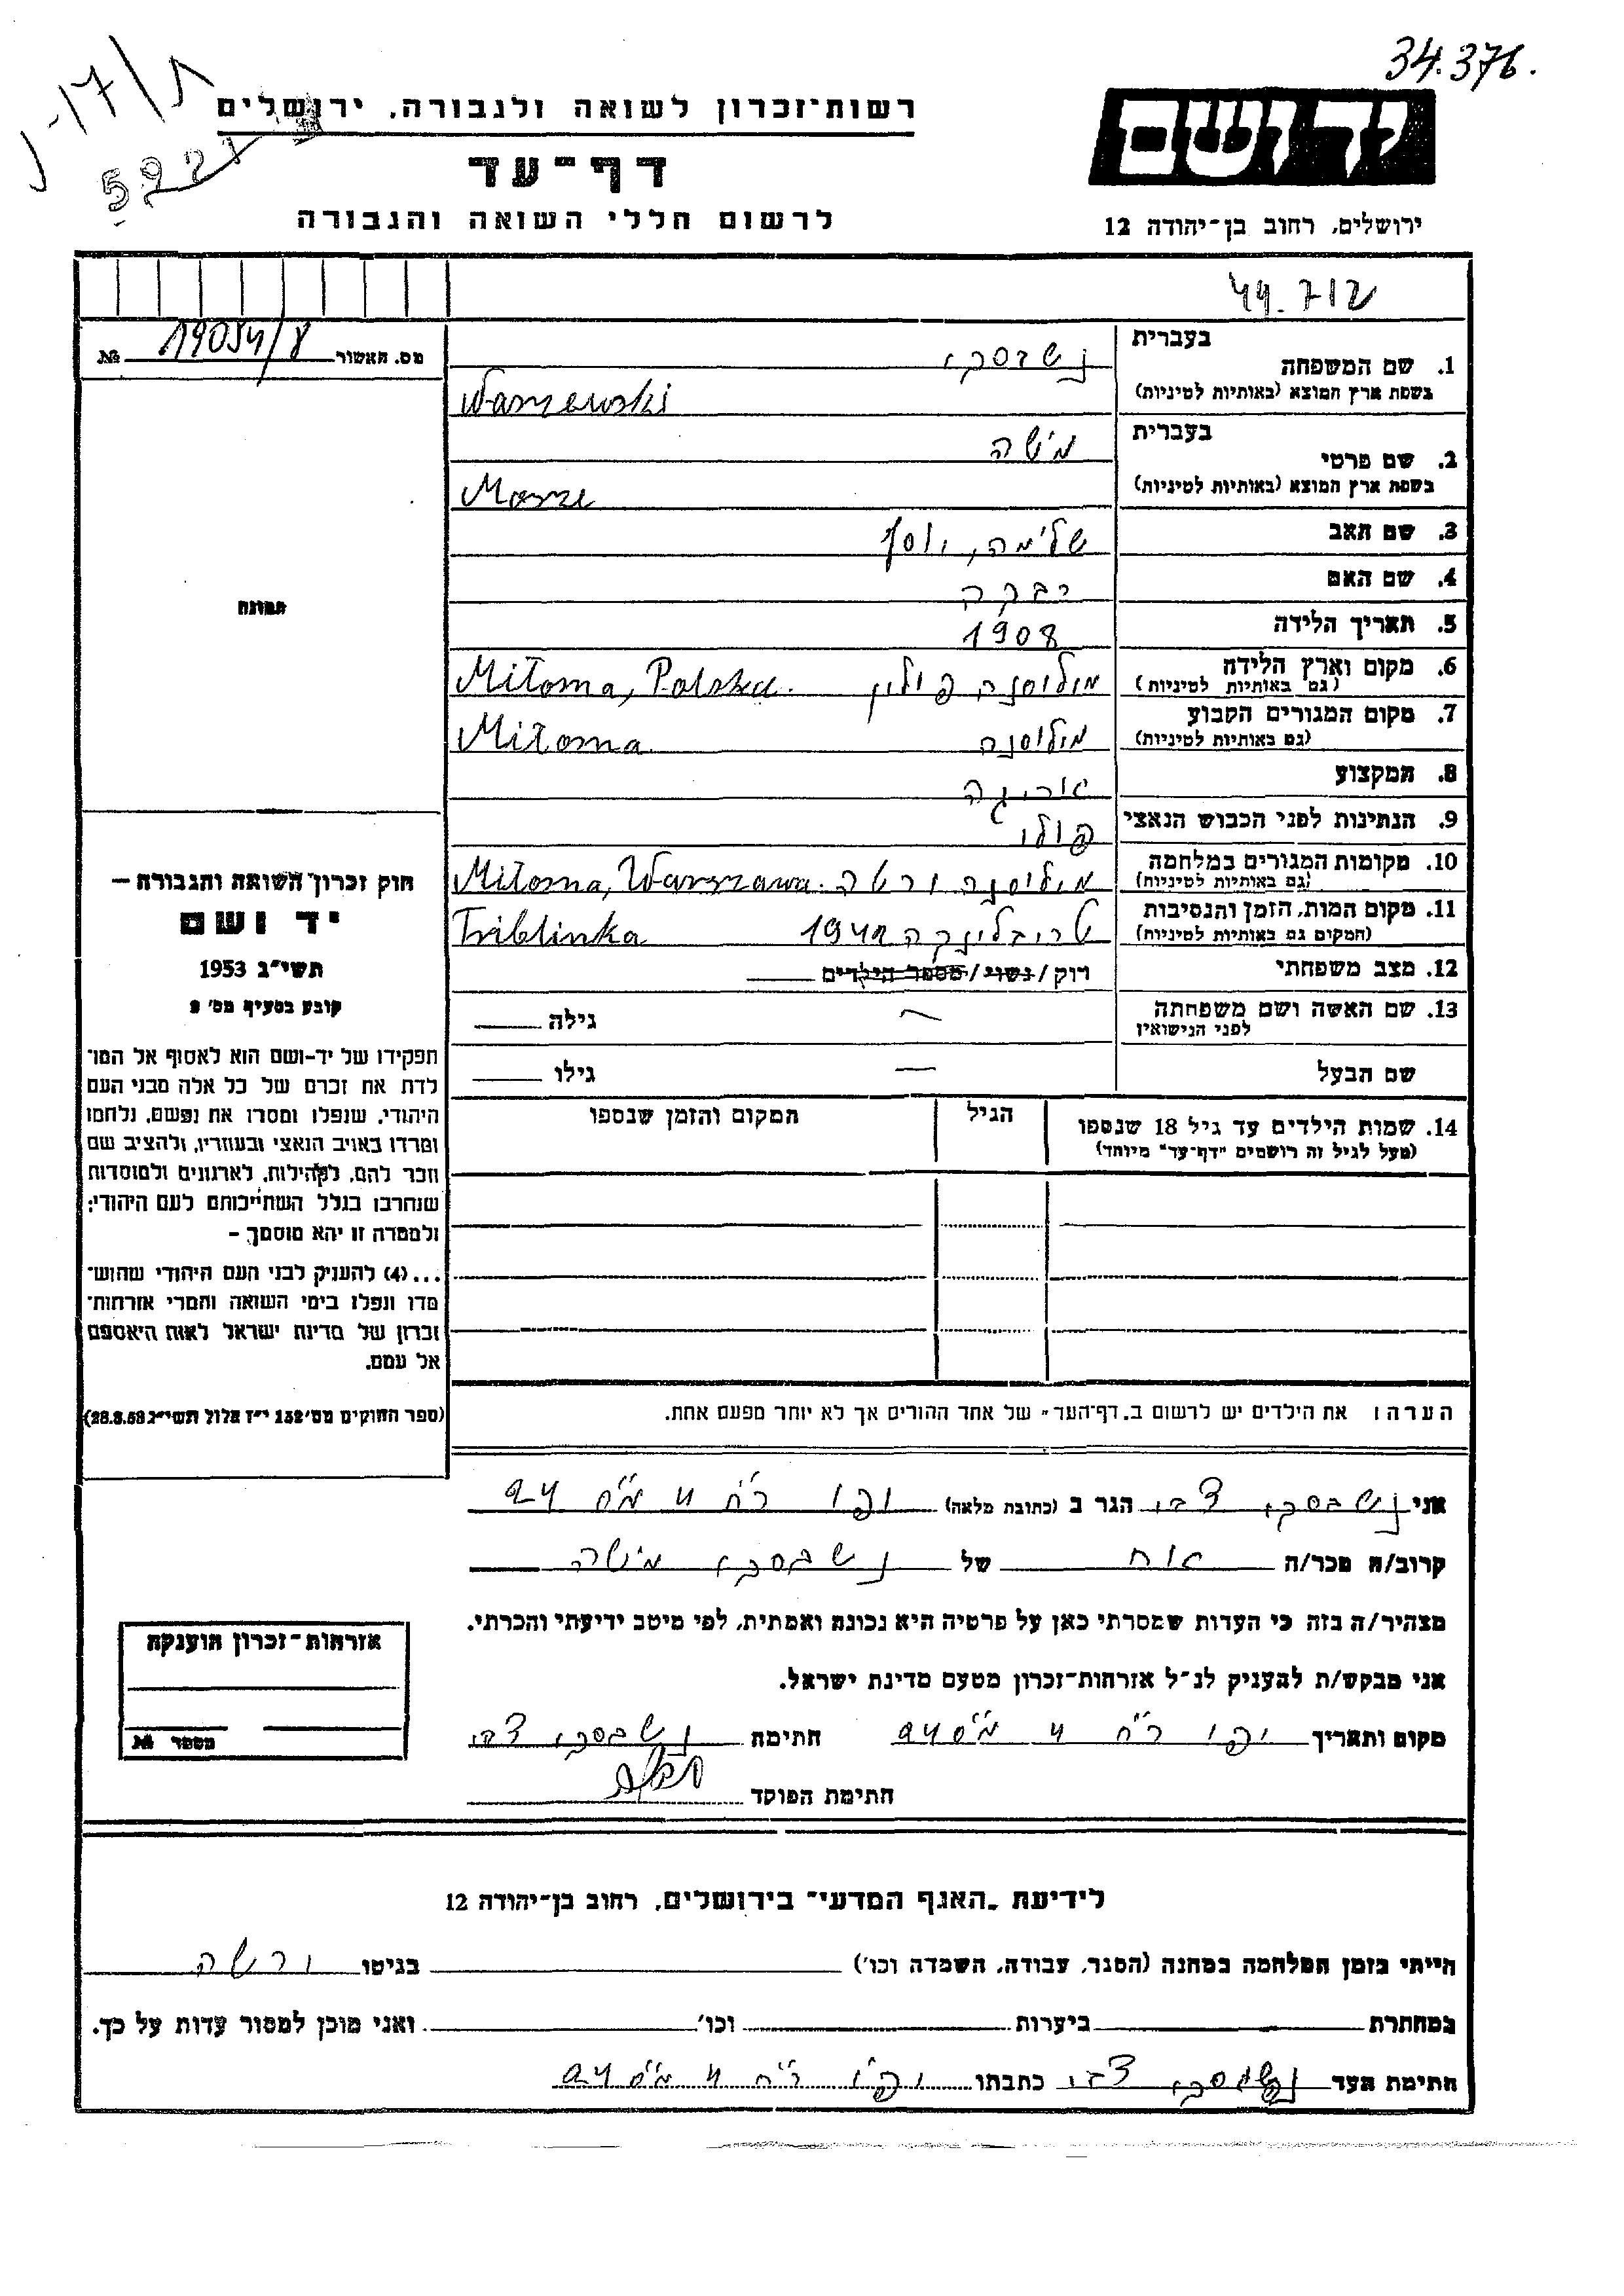 34.376.
רשות־זכרון לשואה ולגבורה, ירושלים
דף־עד
לרשום חללי השואה והגבורה
ידושם
ירושלים, רחוב בן־יהודה 12
44.712
מס. האשור 19054/8 №
בעברית
1. שם המשפחה
בשפת ארץ המוצא (באותיות לטיניות) Warszewski
בעברית
2. שם פרטי מישה
בשפת ארץ המוצא (באותיות לטיניות) Mosze
3. שם האב שלימה, יוסף
4. שם האם רבקה
5. תאריך הלידה 1908
6. מקום וארץ הלידה מילוסנה פולין Miłosna, Polska.
(גם באותיות לטיניות)
7. מקום המגורים הקבוע מילוסנה Miłosna
(גם באותיות לטיניות)
8. המקצוע
9. הנתינות לפני הכבוש הנאצי פולני
10. מקומות המגורים במלחמה מילוסנה ורשה. Miłosna, Warszawa
(גם באותיות לטיניות)
11. מקום המות, הזמן והנסיבות טריבלינקה Triblinka
(המקום גם באותיות לטיניות)
12. מצב משפחתי רוק/נשוי/מספר הילדים
13. שם האשה ושם משפחתה — גילה
לפני הנישואין
שם הבעל — גילו
14. שמות הילדים עד גיל 18 שנספו הגיל המקום והזמן שנספו
(מעל לגיל זה רושמים "דף־עד" מיוחד)
הערה: את הילדים יש לרשום ב„דף־העד" של אחד ההורים אך לא יותר מפעם אחת.
תמונה
חוק זכרון השואה והגבורה —
יד ושם
תשי"ג 1953
קובע בסעיף מס' 2
תפקידו של יד-ושם הוא לאסוף אל המו־
לדת את זכרם של כל אלה מבני העם
היהודי, שנפלו ומסרו את נפשם, נלחמו
ומרדו באויב הנאצי ובעוזריו, ולהציב שם
וזכר להם, לקהילות, לארגונים ולמוסדות
שנחרבו בגלל השתייכותם לעם היהודי;
ולמטרה זו יהא מוסמך —
...(4) להעניק לבני העם היהודי שהוש־
מדו ונפלו בימי השואה והמרי אזרחות־
זכרון של מדינת ישראל לאות היאספם
אל עמם.
(ספר החוקים מס' 132 י"ז אלול תשי"ג 28.8.53)
אני הגר ב (כתובת מלאה) יפו
קרוב/ה מכר/ה אח של מישה
מצהיר/ה בזה כי העדות שמסרתי כאן על פרטיה היא נכונה ואמתית, לפי מיטב ידיעתי והכרתי.
אני מבקש/ת להעניק לנ"ל אזרחות־זכרון מטעם מדינת ישראל.
מקום ותאריך יפו חתימה
חתימת הפוקד
אזרחות־זכרון הוענקה
מספר №
לידיעת „האגף המדעי" בירושלים, רחוב בן־יהודה 12
הייתי בזמן המלחמה במחנה (הסגר, עבודה, השמדה וכו') בגיטו ורשה
במחתרת ביערות וכו' ואני מוכן למסור עדות על כך.
חתימת העד כתבתו יפו